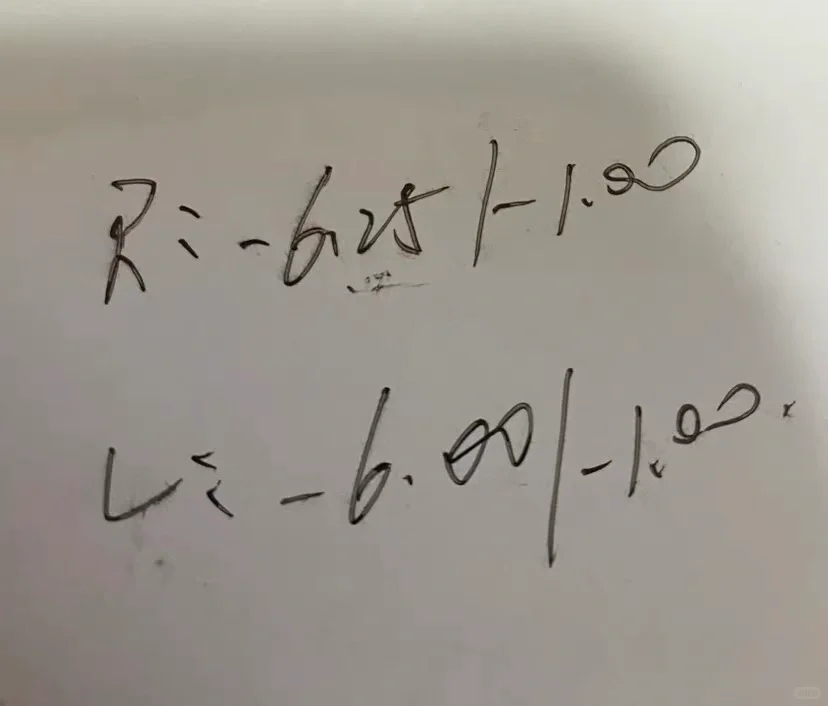 R: -6.25/-1.00
L: -6.00/-1.00